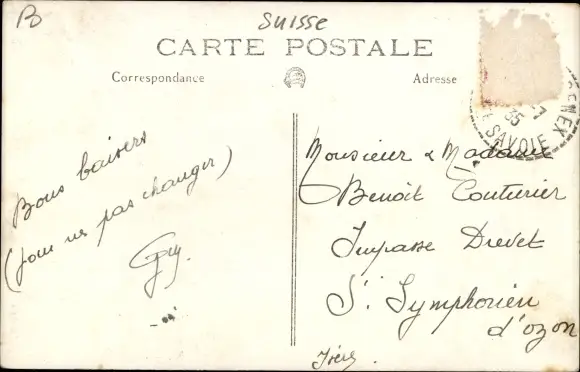 B
Suisse
CARTE POSTALE
Correspondance
Adresse
ENEX
35
SAVOIE
Bons baisers
(pour ne pas changer)
Guy.
Monsieur & Madame
Benoit Couturier
Impasse Drevet
St. Symphorien
d'ozon
Isère